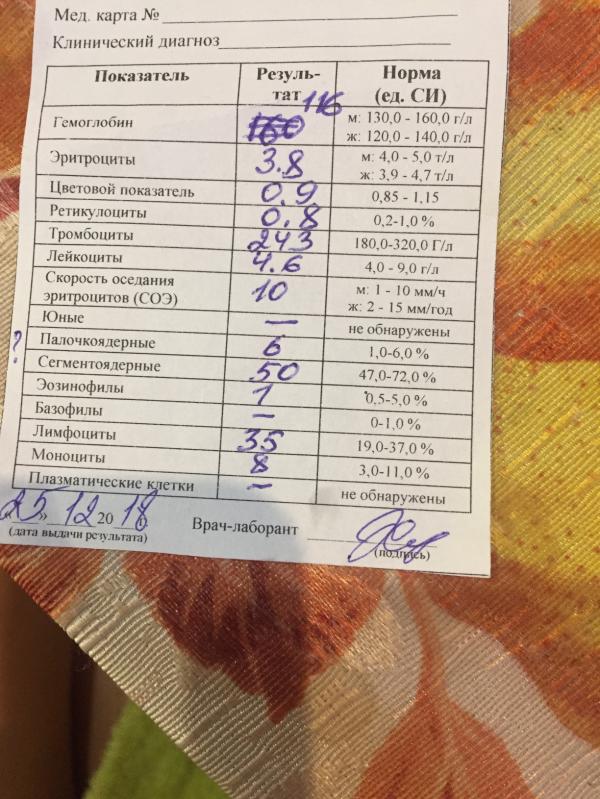 Мед. карта №
Клинический диагноз
Показатель Резуль-тат Норма (ед. СИ)
Гемоглобин 160 116 м: 130,0 - 160,0 г/л
ж: 120,0 - 140,0 г/л
Эритроциты 3.8 м: 4,0 - 5,0 т/л
ж: 3,9 - 4,7 т/л
Цветовой показатель 0.9 0,85 - 1,15
Ретикулоциты 0.8 0,2-1,0 %
Тромбоциты 243 180,0-320,0 Г/л
Лейкоциты 4.6 4,0 - 9,0 г/л
Скорость оседания эритроцитов (СОЭ) 10 м: 1 - 10 мм/ч
ж: 2 - 15 мм/год
Юные — не обнаружены
? Палочкоядерные 6 1,0-6,0 %
Сегментоядерные 50 47,0-72,0 %
Эозинофилы 1 0,5-5,0 %
Базофилы — 0-1,0 %
Лимфоциты 35 19,0-37,0 %
Моноциты 8 3,0-11,0 %
Плазматические клетки — не обнаружены
«25» 12 2018 Врач-лаборант
(дата выдачи результата) (подпись)